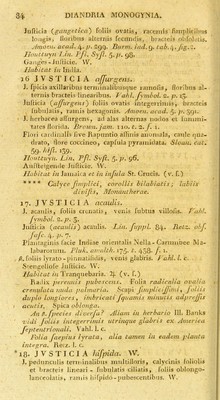 84 DIANDRIA MONOGYNIA.
Justicia (gangetica) foliis ovatis, racemis simplicibus
longis, floribus alternis secundis, bracteis obsoletis.
Amoen. acad. 4. p. 299. Burm. ind. 9. tab. 4. fig. 2.
Houttuyn Lin. Pfl. Syst. 5. p. 96.
Ganges-Justicie. W.
Habitat in India.
16 JVSTICIA assurgens.
J. spicis axillaribus terminalibusque ramosis, floribus al-
ternis bracteis linearibus. Vahl. symbol. 2. p. 15.
Justicia (assurgens) foliis ovatis integerrimis, bracteis
subulatis, ramis hexagonis. Amoen. acad. 5. p. 391.
J. herbacea assurgens, ad alas alternas nodos et summi-
tates florida. Brown. jam. 118. t. 2. f. 1.
Flori cardinalis sive Rapuntio affinis anomala, caule qua-
drato, flore coccineo, capsula pyramidata. Sloan. cat.
59. hist. 159.
Houttuyn. Lin. Pfl. Syst. 5. p. 96.
Aufsteigende Justicie. W.
Habitat in Jamaica et in insula St. Crucis. (v. s.)
**** Calyce simplici, corollis bilabiatis; labiis
divisis, Monantherae.
17. JVSTICIA acaulis.
J. acaulis, foliis crenatis, venis subtus villosis. Vahl.
symbol. 2. p. 5.
Justicia (acaulis) acaulis. Lin. suppl. 84. Retz. obs.
fasc. 4. p. 7.
Plantaginis facie Indiae orientalis Nella-Carnambee Ma-
labarorum. Pluk. amalth. 175. t. 438. f. 1.
foliis lyrato-pinnatifidis, venis glabris. Vahl. l. c.
Stengellose Justicie. W.
Habitat in Tranquebaria. ♃. (v. s.)
Radix perennis pubescens. Folia radicalia ovalia
crenulata undo palmaria. Scapi simplicissimi foliis
duplo longiores, imbricati squamis minutis adpressis
acutis. Spica oblonga.
An species diversa? Aliam in herbario Ill. Banks
vidi foliis integerrimis utrinque glabris ex America
septentrionali. Vahl. l. c.
Folia saepius lyrata, alia tamen in eadem planta
integra. Retz. l. c.
*18. JVSTICIA hispida. W.
J. pedunculis terminalibus multifloris, calycinis foliolis
et bracteis lineari-subulatis ciliatis, foliis oblongo-
lanceolatis, ramis hispido-pubescentibus. W.